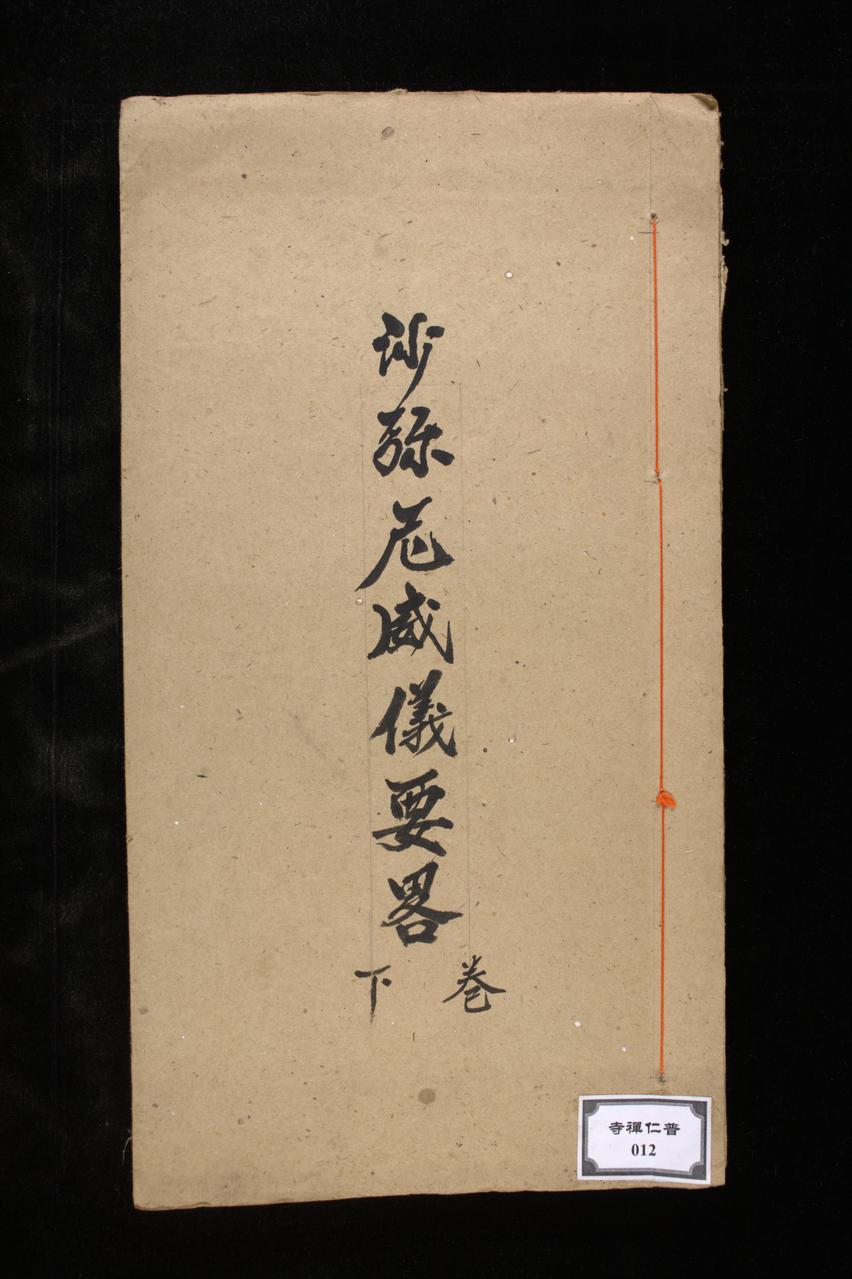 沙弥尼威儀要畧
卷下
普仁禪寺
012